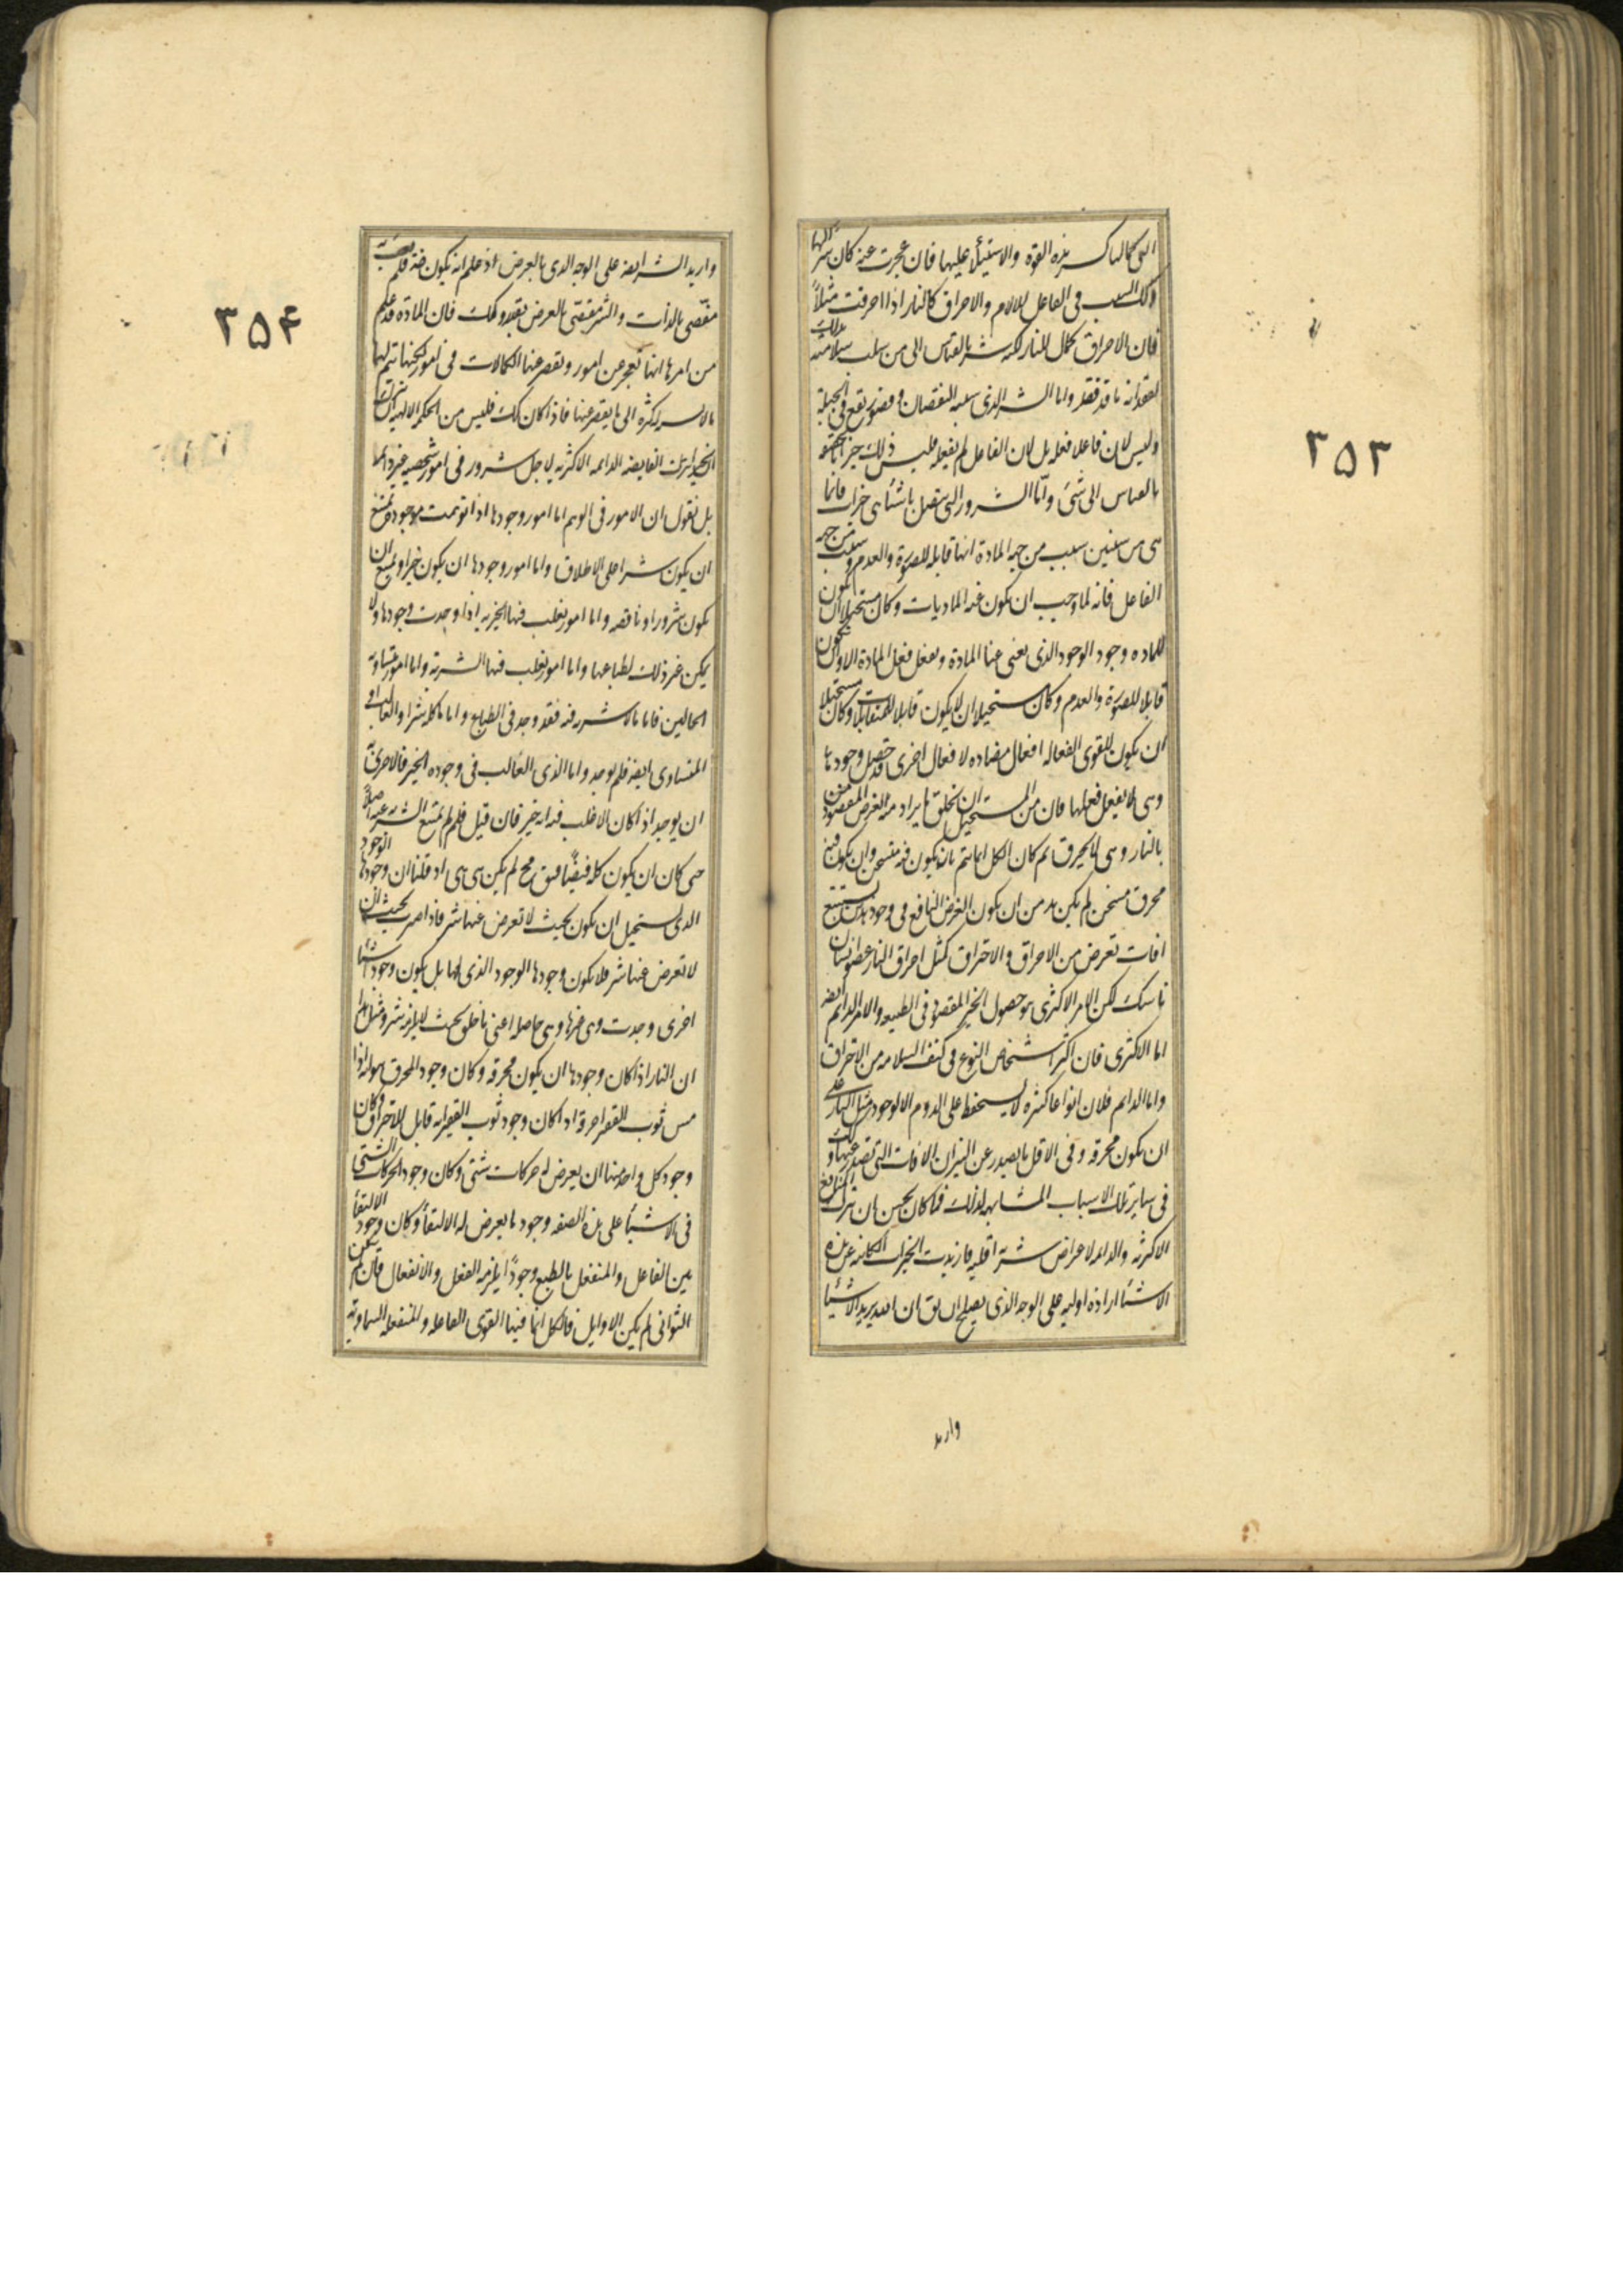 التى كمالها كسر هذه القوة والاستيلاء عليها فان عجزت عنه كان شرا لها
وكك السبب فى الفاعل للآلام والاحراق كالنار اذا احرقت مثلاً
فان الاحراق كمال للنار لكنه شر بالقياس الى من سلب سلامته بذلك
لفقدانه ما قد فقد واما الشر الذى سببه النقصان وقصور يقع فى الجبلة
وليس لان فاعلا فعله بل لان الفاعل لم يفعله فليس ذلك خيرا
بالقياس الى شئ وامّا الشرور التى يتصل باشياء هى خيرات فانما
هى من سببين سبب من جهة المادة انها قابلة للصورة والعدم وسبب من جهة
الفاعل فانه لما وجب ان يكون عنه الماديات وكان مستحيلا ان يكون
للمادة وجود الوجود الذى يغنى غنا المادة ويفعل فعل المادة الا وان يكون
قابلا للصورة والعدم وكان مستحيلا ان لا يكون قابلا للمتقابلات وكان مستحيلا
ان يكون للقوى الفعالة افعال مضاده لافعال اخرى قد حصل وجودها
وهى لا يفعل فعلها فان من المستحيل ان تخلق ما يراد منه الغرض المقصود من
بالنار وهى لا يحرق ثم كان الكل انما يتم بان يكون فيه متسخن وان يكون فيه
محرق مسخن لم يكن بد من ان يكون الغرض النافع فى وجود هذين يستتبع
افات تعرض من الاحراق والاحتراق كمثل احراق النار عضو انسان
ناسك لكن الامر الاكثرى هو حصول الخير المقصود فى الطبيعه والامر الدائم ايضه
اما الاكثرى فان اكثر اشخاص النوع فى كنف السلامه من الاحتراق
واما الدائم فلان انواعا كثيره لا يستحفظ على الدوام الا بوجود مثل النار على
ان يكون محرقه وفى الاقل ما يصدر عن النيران الافات التى تصدر عنها وكك
فى ساير تلك الاسباب المشابهه لذلك فما كان يحسن ان تترك المنافع
الاكثرية والدائمه لاعراض شرية اقلية فاريدت الخيرات الكائنه عن هذه
الاشياء ارادة اولية على الوجه الذى يصلح ان يق ان الله يريد الاشياء
وارىد
٣٥٣
واريد الشر ايضه على الوجه الذى بالعرض اذ علم انه يكون ضرورة فلم يعبأ به
مقتضى بالذات والشر مقتضى بالعرض بقدر وكك فان المادة قد علم
من امرها انها تعجز عن امور وتقصر عنها الكمالات فى امور لكنها يتم لها
ما لا نسبة له كثرة الى ما يقصر عنها فاذا كان كك فليس من الحكمة الالهيه ان تترك
الخيرات الفايضه الدائمه الاكثريه لاجل شرور فى امور شخصيه غير دائمه
بل نقول ان الامور فى الوهم اما امور وجودها اذا توهمت موجودة يمتنع
ان يكون شرا على الاطلاق واما امور وجودها ان يكون خيرا ويمتنع ان
يكون شرورا وناقصه واما امور يغلب فيها الخيرية اذا وجدت وجودها ولا
يمكن غير ذلك لطباعها واما امور يغلب فيها الشرية واما امور متساوية
الحالين فاما ما لا شرية فيه فقد وجد فى الطباع واما ما كله شر او الغالب او
المتساوى ايضه فلم يوجد واما الذى الغالب فى وجوده الخير فالاحرى به
ان يوجد اذا كان الاغلب فيه انه خير فان قيل فلم لم يمتنع الشرية عنه اصلاً
حتى كان ان يكون كله خيرا فيق مح لم يكن هى هى اذ قلنا ان وجودها الوجود
الذى يستحيل ان يكون بحيث لا تعرض عنها شر فاذا صيرت بحيث
لا تعرض عنها شر فلا يكون وجودها الوجود الذى لها بل يكون وجود اشيا
اخرى وجدت وهى غيرها وهى حاصله اعنى ما خلق بحيث لا يلزمه شر ومثل هذا
ان النار اذا كان وجودها ان يكون محرقه وكان وجود المحرق هو انه اذا
مس ثوب الفقير احرقه اذ كان وجود ثوب الفقير انه قابل للاحتراق وكان
وجود كل واحد منها ان يعرض له حركات شتى وكان وجود الحركات الشتى
فى الاشياء على هذه الصفه وجود ما يعرض له الالتقاء وكان وجود الالتقاء
بين الفاعل والمنفعل بالطبع وجوداً يلزمه الفعل والانفعال فان لم يكن
الثوانى لم يكن الاوايل فالكل انما فيها القوى الفاعله والمنفعله السماوية
٣٥۴